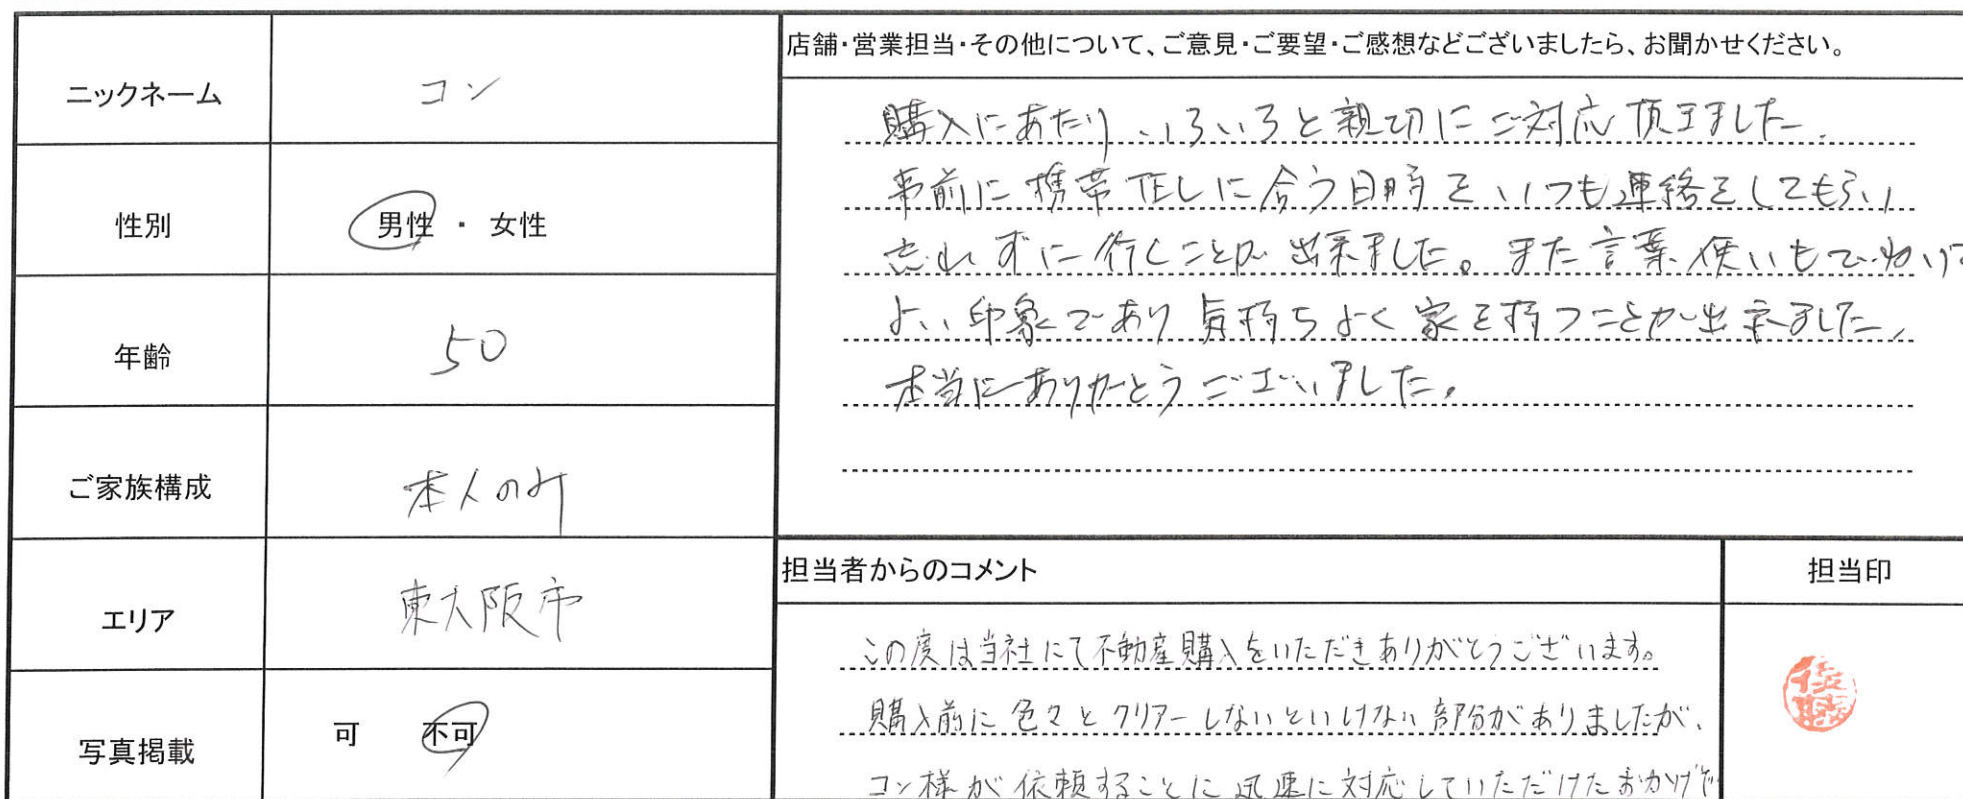 ニックネーム コン
性別 男性 ・ 女性
年齢 50
ご家族構成 本人のみ
エリア 東大阪市
写真掲載 可 不可
店舗・営業担当・その他について、ご意見・ご要望・ご感想などございましたら、お聞かせください。
購入にあたり、いろいろと親切にご対応頂きました。
事前に携帯 に合う日時をいつも連絡をしてもらい
忘れずに行くことが出来ました。また言葉使いもていねいで
よい印象であり気持ちよく家を持つことが出来ました。
本当にありがとうございました。
担当者からのコメント
この度は当社にて不動産購入をいただきありがとうございます。
購入前に色々とクリアーしないといけない部分がありましたが、
コン様が依頼することに迅速に対応していただけたおかげで
担当印
後藤